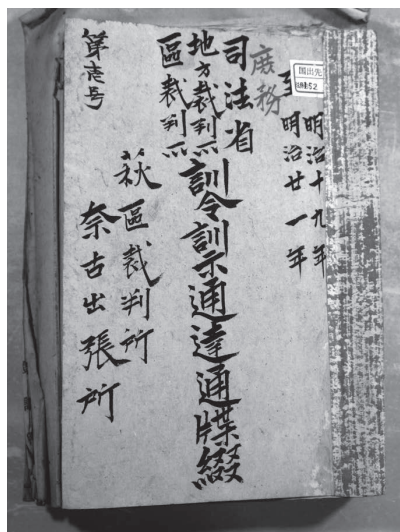 明治十九年
至明治廿一年
庶務
司法省
地方裁判所
區裁判所
訓令訓示通達通牒綴
萩區裁判所
奈古出張所
第壱号
国出先